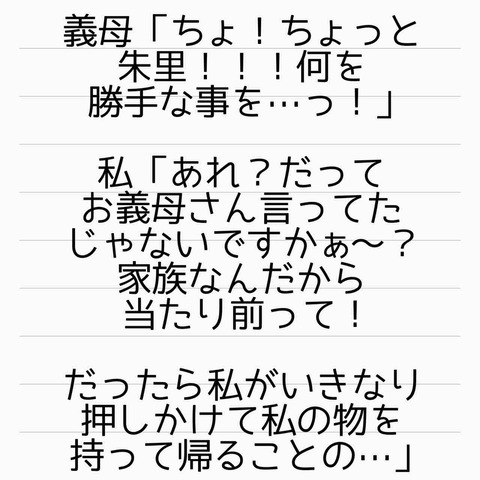 義母「ちょ！ちょっと
朱里！！！何を
勝手な事を…っ！」
私「あれ？だって
お義母さん言ってた
じゃないですかぁ〜？
家族なんだから
当たり前って！
だったら私がいきなり
押しかけて私の物を
持って帰ることの…」